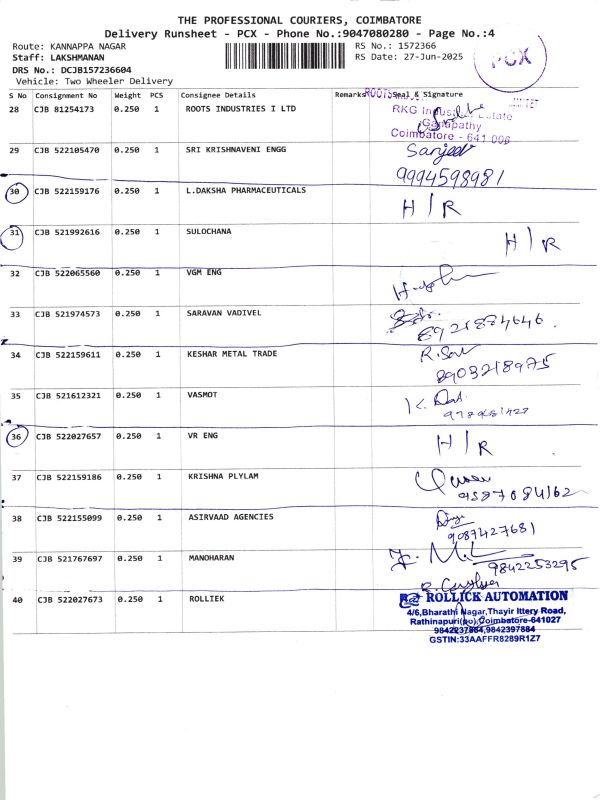 THE PROFESSIONAL COURIERS, COIMBATORE
Delivery Runsheet - PCX - Phone No.:9047080280 - Page No.:4
Route: KANNAPPA NAGAR RS No.: 1572366
Staff: LAKSHMANAN RS Date: 27-Jun-2025
PCX
DRS No.: DCJB157236604
Vehicle: Two Wheeler Delivery
S No Consignment No Weight PCS Consignee Details Remarks Seal & Signature
28 CJB 81254173 0.250 1 ROOTS INDUSTRIES I LTD
ROOTS
RKG Industrial Estate
Ganapathy
Coimbatore - 641 006
29 CJB 522105470 0.250 1 SRI KRISHNAVENI ENGG Sanjeev
9994598981
30 CJB 522159176 0.250 1 L.DAKSHA PHARMACEUTICALS H/R
31 CJB 521992616 0.250 1 SULOCHANA H/R
32 CJB 522065560 0.250 1 VGM ENG
33 CJB 521974573 0.250 1 SARAVAN VADIVEL
8921834646
34 CJB 522159611 0.250 1 KESHAR METAL TRADE
8903218975
35 CJB 521612321 0.250 1 VASMOT
36 CJB 522027657 0.250 1 VR ENG H/R
37 CJB 522159186 0.250 1 KRISHNA PLYLAM
9587084162
38 CJB 522155099 0.250 1 ASIRVAAD AGENCIES
9087427681
39 CJB 521767697 0.250 1 MANOHARAN
9842253295
40 CJB 522027673 0.250 1 ROLLIEK
ROLLICK AUTOMATION
4/6,Bharathi Nagar,Thayir Ittery Road,
Rathinapuri(po),Coimbatore-641027
9842237884,9842397884
GSTIN:33AAFFR8289R1Z7